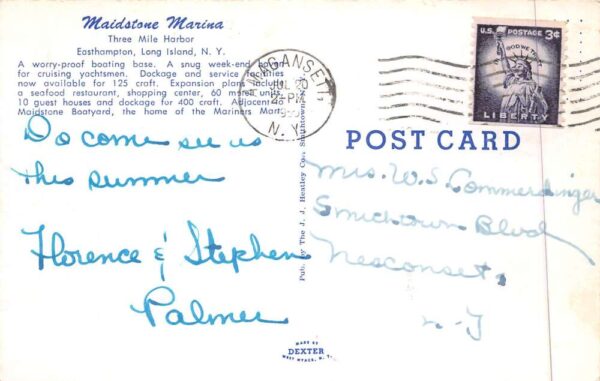 Maidstone Marina
Three Mile Harbor
Easthampton, Long Island, N. Y.
A worry-proof boating base. A snug week-end haven
for cruising yachtsmen. Dockage and service facilities
now available for 125 craft. Expansion plans include
a seafood restaurant, shopping center, 60 motel units,
10 guest houses and dockage for 400 craft. Adjacent
Maidstone Boatyard, the home of the Mariners Mart.
Do come see us
this summer
Florence & Stephen
Palmer
AMAGANSETT,
JUL 20
PM
N. Y.
U.S. POSTAGE 3¢
IN GOD WE TRUST
LIBERTY
POST CARD
Mrs. W. S. Commerdinger
Smithtown Blvd
Nesconset,
N. Y
Pub. by The J. J. Heatley Co., Smithtown,
MADE BY
DEXTER
WEST NYACK, N. Y.